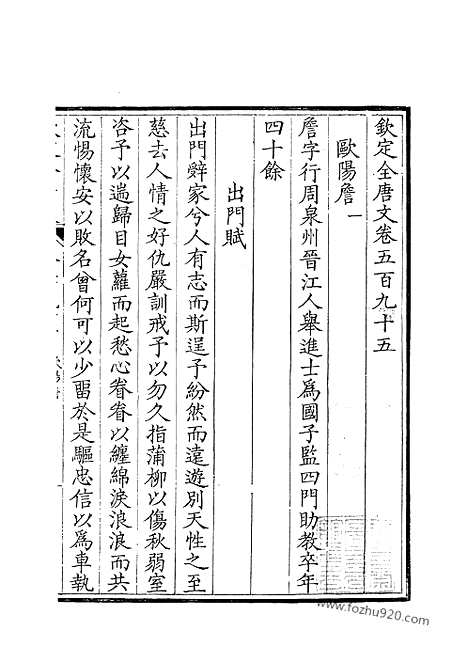 欽定全唐文卷五百九十五
歐陽詹一
詹字行周泉州晉江人舉進士爲國子監四門助教卒年
四十餘
出門賦
出門辭家兮人有志而斯逞予紛然而遠遊別天性之至
慈去人情之好仇嚴訓戒予以勿久指蒲柳以傷秋弱室
咨予以遄歸目女蘿而起愁心眷眷以纏綿淚浪浪而共
流惕懷安以敗名曾何可以少留於是驅忠信以爲車執
www.fozhu920.com